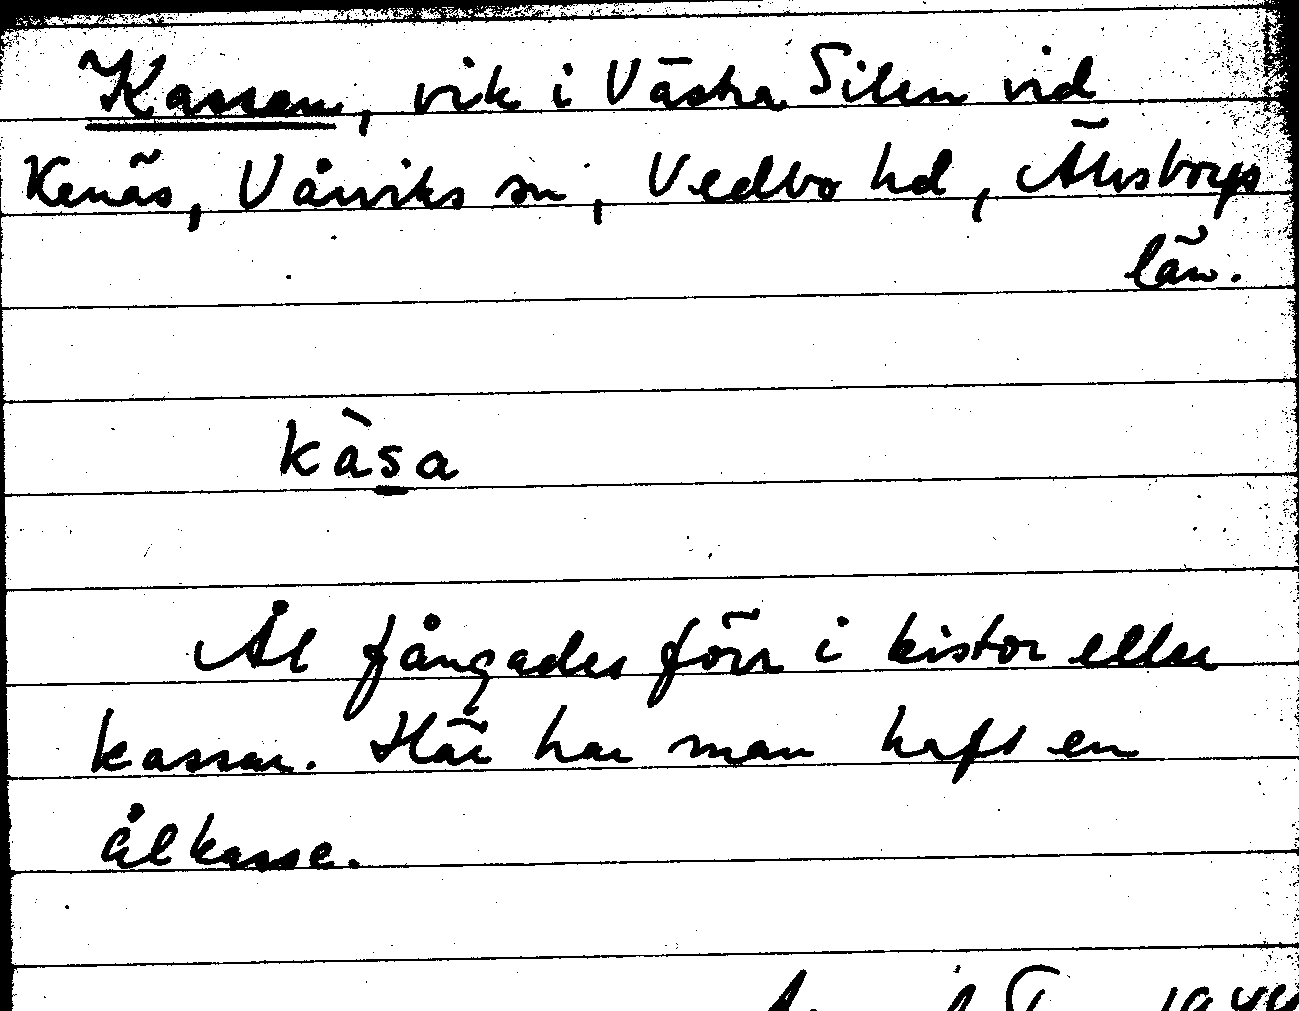 Kassen, vik i Västra Silen vid
Kenäs, Vårviks sn, Vedbo hd, Älvsborgs
län.
kàsa
Ål fångades förr i kistor eller
kassar. Här har man haft en
ålkasse.